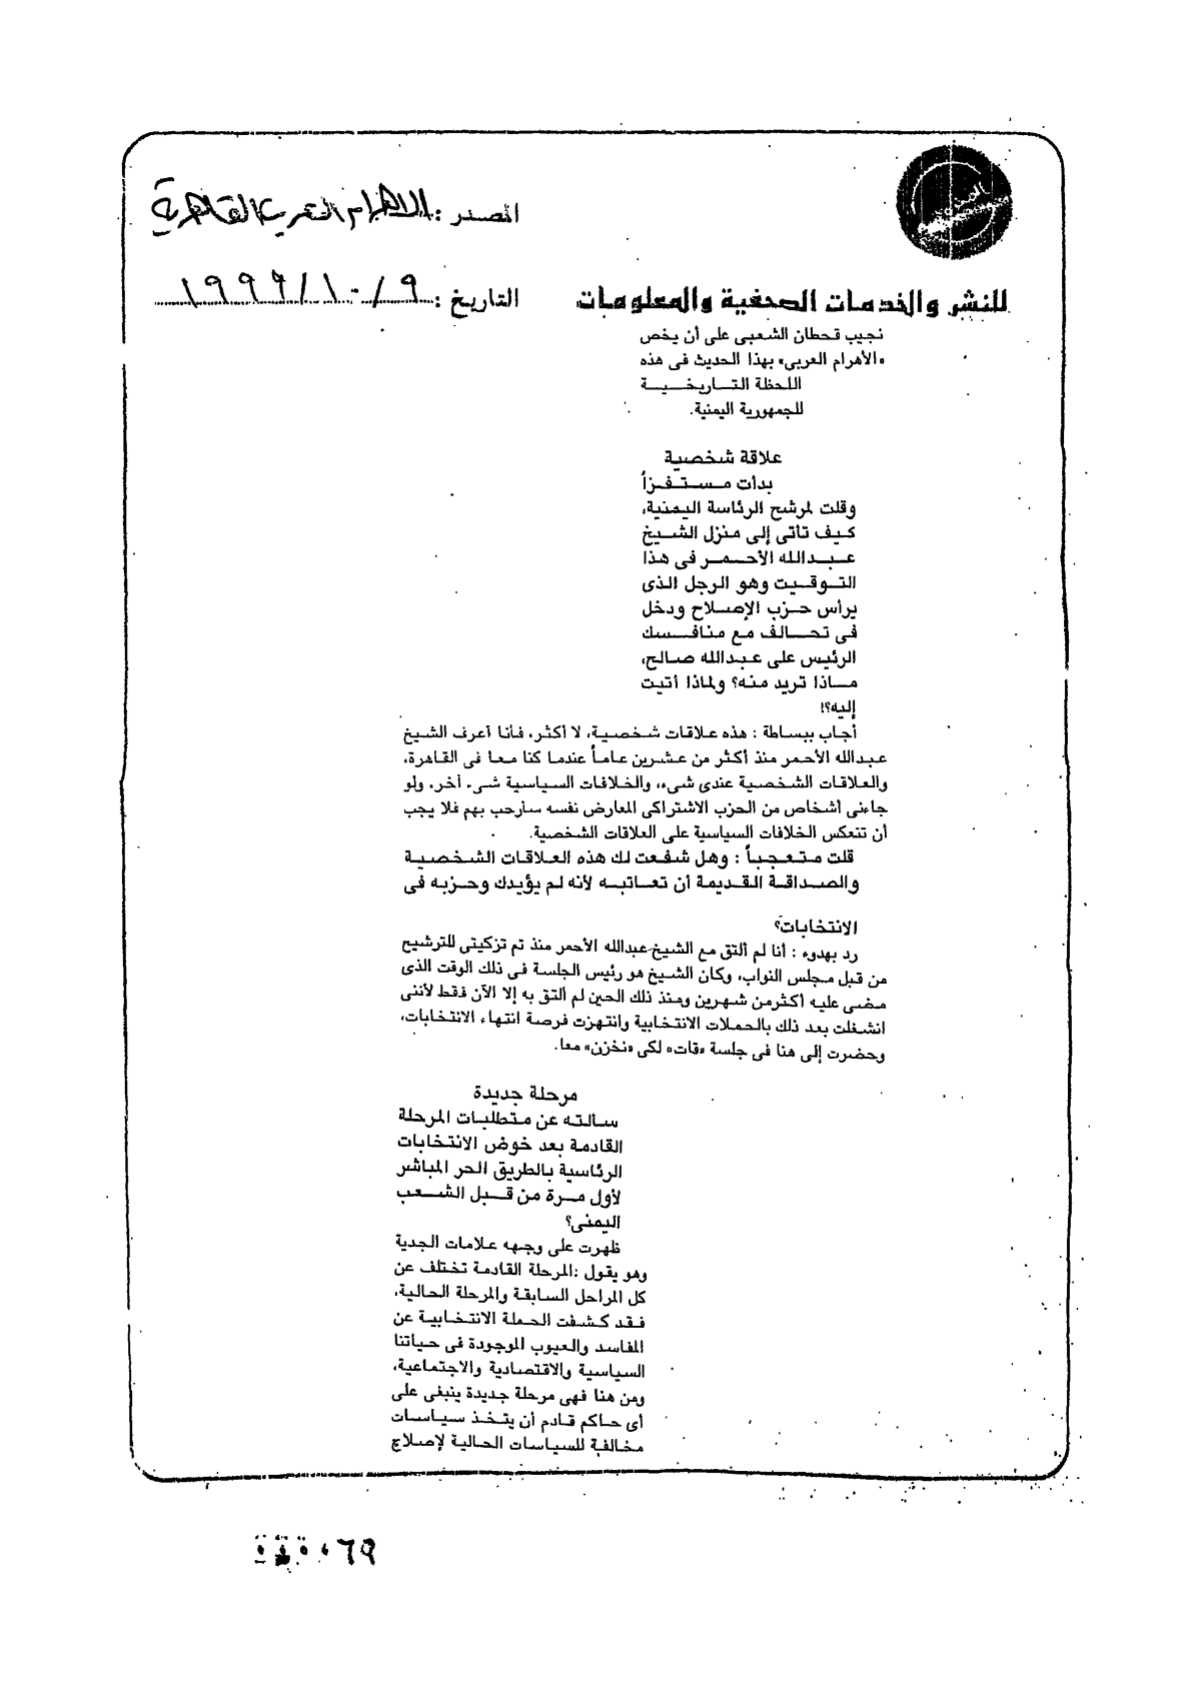 المصدر : الأهرام العربي القاهرية
التاريخ : ٩/١٠/١٩٩٩
للنشر والخدمات الصحفية والمعلومات
نجيب قحطان الشعبى على أن يخص
«الأهرام العربى» بهذا الحديث فى هذه
اللحظة التاريخية
للجمهورية اليمنية.
علاقة شخصية
بدأت مستفزاً
وقلت لمرشح الرئاسة اليمنية،
كيف تأتى إلى منزل الشيخ
عبدالله الأحمر فى هذا
التوقيت وهو الرجل الذى
يرأس حزب الإصلاح ودخل
فى تحالف مع منافسك
الرئيس على عبدالله صالح،
ماذا تريد منه؟ ولماذا أتيت
إليه؟!
أجاب ببساطة : هذه علاقات شخصية، لا أكثر، فأنا أعرف الشيخ
عبدالله الأحمر منذ أكثر من عشرين عاماً عندما كنا معا فى القاهرة،
والعلاقات الشخصية عندى شىء، والخلافات السياسية شىء آخر. ولو
جاءنى أشخاص من الحزب الاشتراكى المعارض نفسه سأرحب بهم فلا يجب
أن تنعكس الخلافات السياسية على العلاقات الشخصية.
قلت متعجباً : وهل شفعت لك هذه العلاقات الشخصية
والصداقة القديمة أن تعاتبه لأنه لم يؤيدك وحزبه فى
الانتخابات؟
رد بهدوء : أنا لم ألتق مع الشيخ عبدالله الأحمر منذ تم تزكيتى للترشيح
من قبل مجلس النواب، وكان الشيخ هو رئيس الجلسة فى ذلك الوقت الذى
مضى عليه أكثر من شهرين ومنذ ذلك الحين لم ألتق به إلا الآن فقط لأننى
انشغلت بعد ذلك بالحملات الانتخابية وانتهزت فرصة انتهاء الانتخابات،
وحضرت إلى هنا فى جلسة «قات» لكى «نخزن» معا.
مرحلة جديدة
سألته عن متطلبات المرحلة
القادمة بعد خوض الانتخابات
الرئاسية بالطريق الحر المباشر
لأول مرة من قبل الشعب
اليمنى؟
ظهرت على وجهه علامات الجدية
وهو يقول :المرحلة القادمة تختلف عن
كل المراحل السابقة والمرحلة الحالية،
فقد كشفت الحملة الانتخابية عن
المفاسد والعيوب الموجودة فى حياتنا
السياسية والاقتصادية والاجتماعية،
ومن هنا فهى مرحلة جديدة ينبغى على
أى حاكم قادم أن يتخذ سياسات
مخالفة للسياسات الحالية لإصلاح